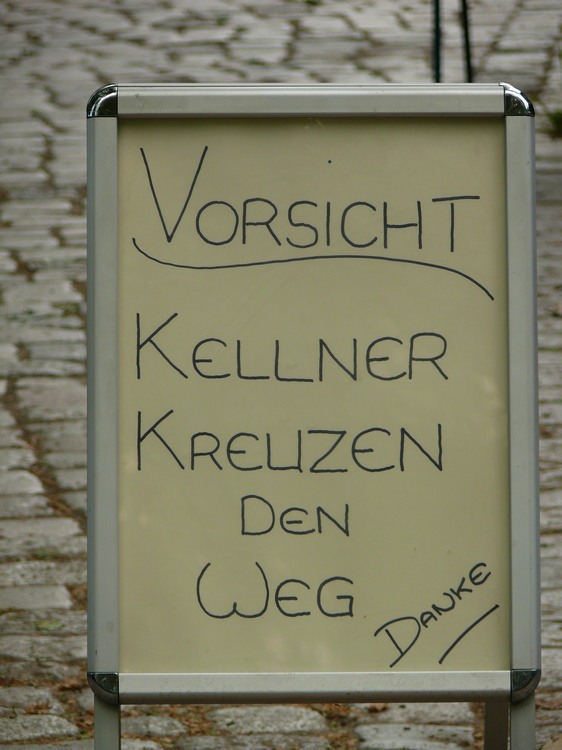 VORSICHT
KELLNER
KREUZEN
DEN
WEG
DANKE